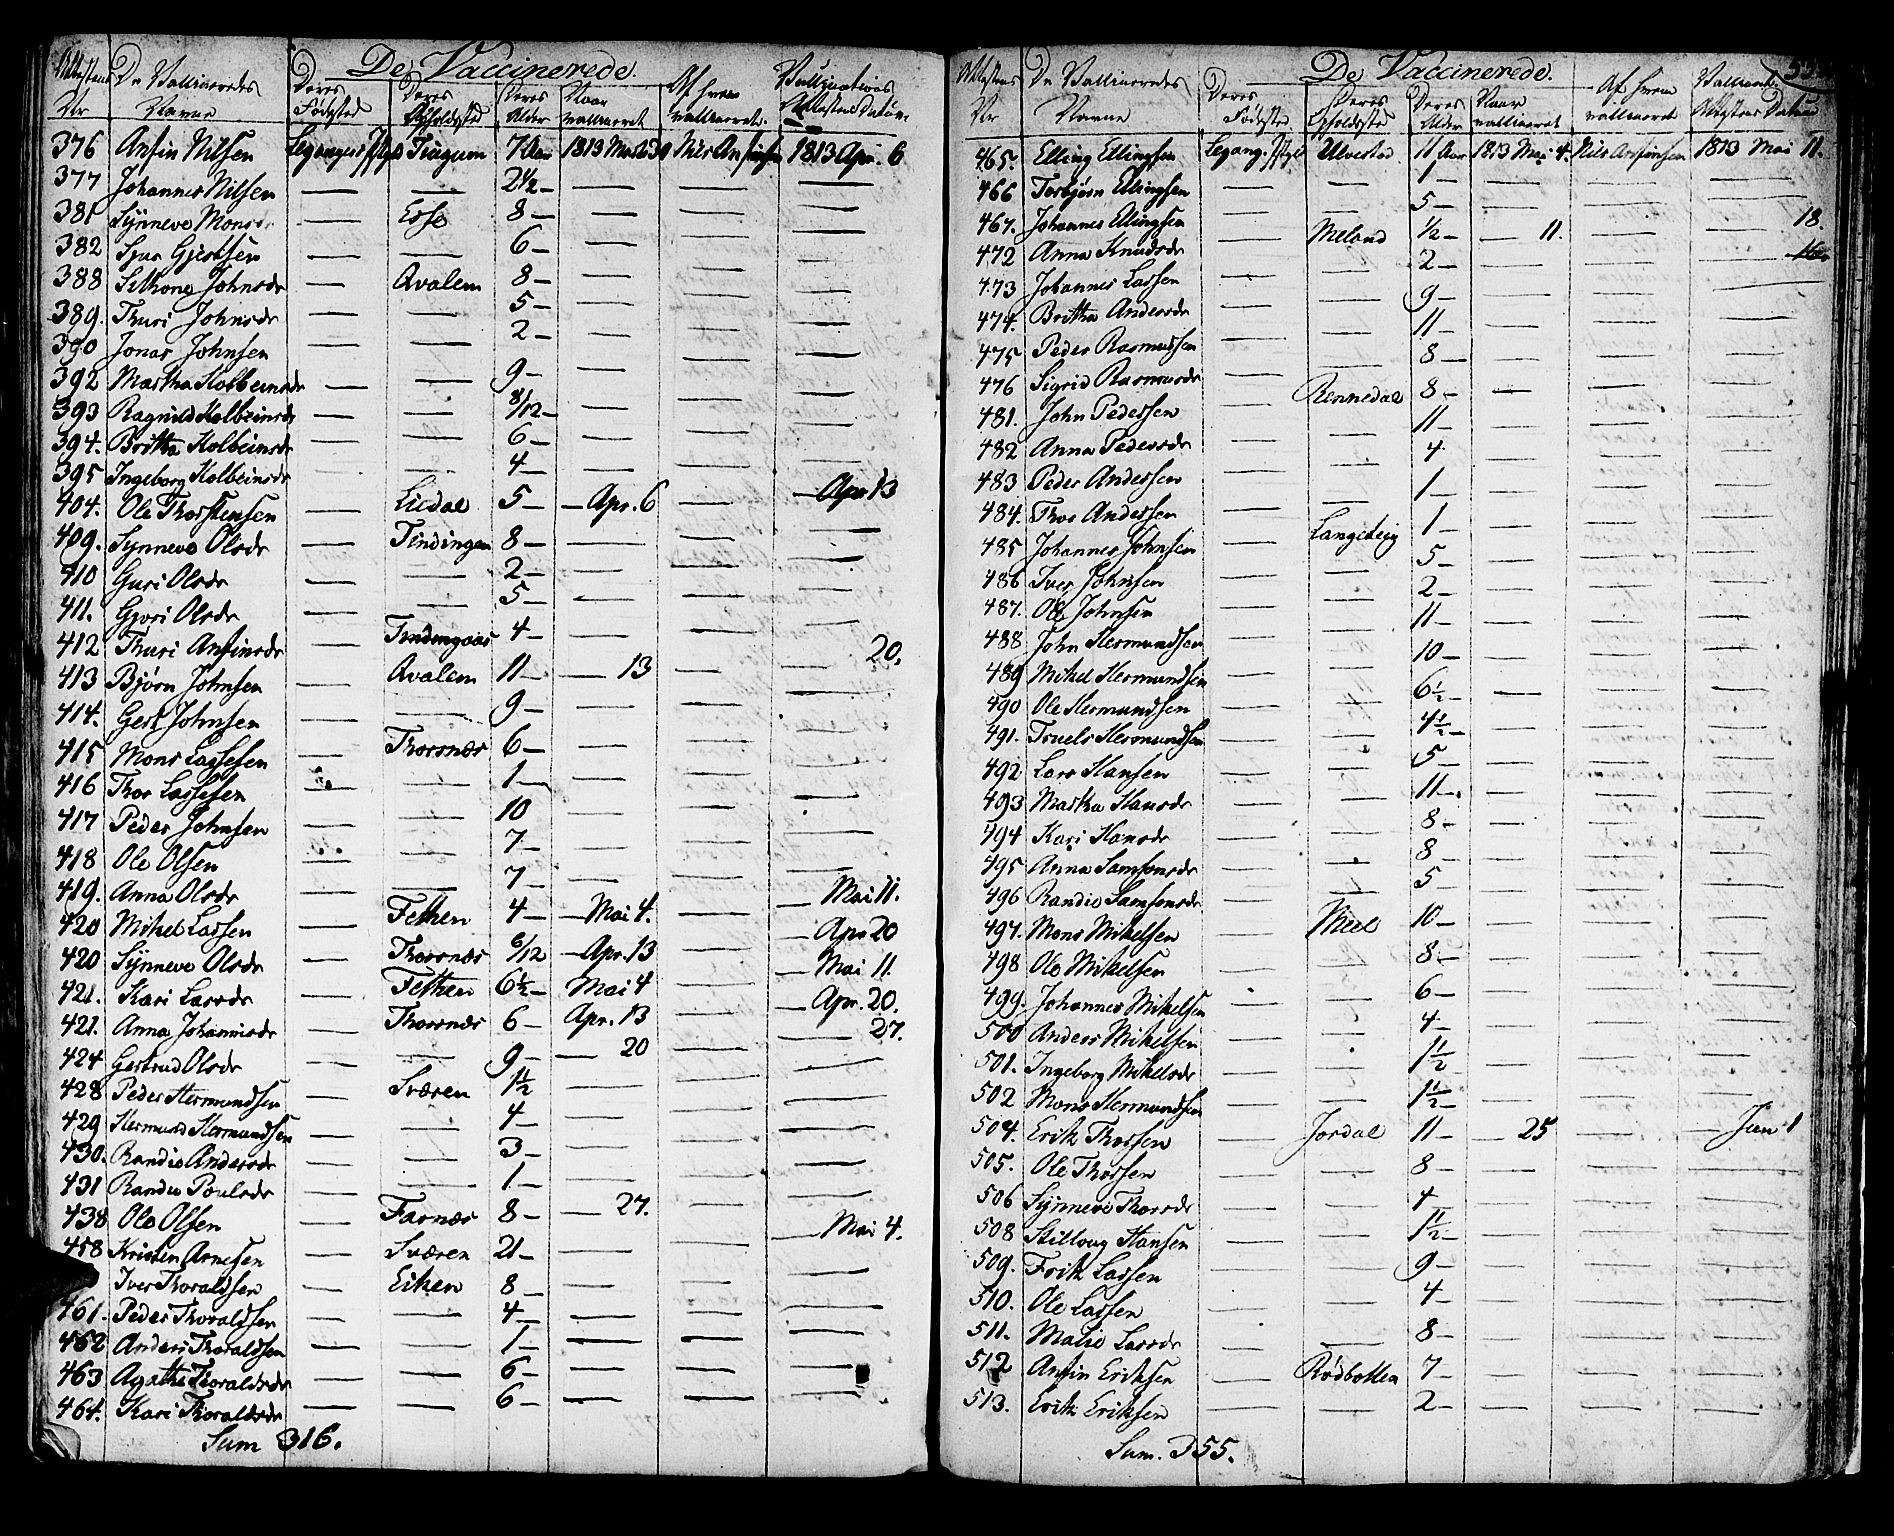 De Vaccinerede.
Attestens Nr | De Vaccineredes Navne | Deres Fødested | Deres Opholdssted | Deres Alder | Naar vaccineret | Af hvem vaccineret | Vaccinations Attestens Datum
376 Anfin Nilsen Leganger Pgld Tiugum 7 Aar 1813 Marts 30 Nils Anfinsen 1813 Apr. 6
377 Johannes Nilsen — — 2½ — — — —
381 Synneve Monsdr — Esse 8 — — — —
382 Sjur Gjertsen — — 6 — — — —
388 Sithone Johnsdr — Qvalem 8 — — — —
389. Thuri Johnsdr — — 5 — — — —
390 Jonas Johnsen — — 2 — — — —
392 Martha Kolbeinsdr — — 9 — — — —
393 Ragnild Kolbeinsdr — — 8/12 — — — —
394. Britha Kolbeinsdr — — 6 — — — —
395 Ingeborg Kolbeinsdr — — 4 — — — —
404. Ole Thorstensen — Liedal 5 — — Apr. 6 — — Apr 13
409. Synneve Olsdr — Findingen 8 — — — —
410 Guri Olsdr — — 2 — — — —
411. Gjori Olsdr — — 5 — — — —
412 Thuri Anfinsdr — 4 — — — —
413 Bjørn Johnsen — Qvalem 11 — — 13 — — 20.
414. Gert Johnsen — — 9 — — — —
415 Mons Lassesen — Thorsnæs 6 — — — —
416 Thor Lassesen — 1 — — — —
417 Peder Johnsen — — 10 — — —
418 Ole Olsen — 7 — — — —
419. Anna Olsdr — — 7 — — — —
420 Mikel Lassen — Fethen 4 — — Mai 4. — — Mai 11.
420 Synneve Olsdr — Thorsnæs 6/12 — Apr. 13 — — Apr 20
421. Kari Larsdr — Fethen 6½ — Mai 4 — — Mai 11.
421. Anna Johannisdr — Thorsnæs 6 — Apr. 13 — — Apr. 20.
424 Gertrud Olsdr — — 9 — — 20 — — 27.
428 Peder Hermundsen — Sværen 1½ — — —
429 Hermund Hermundsen — — 4 — — — —
430. Randie Andersdr — — 3 — — — —
431 Randie Poulsdr — — 1 — — — —
438 Ole Olsen — Farnæs 8 — — 27. — — Mai 4.
458 Kristen Arnesen — Sværen 21 — — — —
Iver Thoraldsen — Eiken 8 — — — —
461. Peder Thoraldsen — — 4 — — — —
462 Anders Thoraldsen — — 1 — — — —
463 Agathe Thoraldsdr — — 6 — — —
464. Kari Thoraldsdr — — 6 — — — —
Sum 316.
De Vaccinerede.
Attestens Nr | De Vaccineredes Navne | Deres Fødested | Deres Opholdssted | Deres Alder | Naar vaccineret | Af hvem vaccineret | Vaccinat. Attestens Datum
465. Elling Ellingsen Legang. Pgld Ulvestad 11 Aar 1813 Mai 4. Nils Anfinsen 1813 Mai 11.
466 Torbjørn Ellingsen — — 1 — — — —
467. Johannes Ellingsen — — 5 — — — —
472 Anna Knudsdr — Meland ½ — — 11. — — 18.
473 Johannes Lassen — — 2 — — — —
474. Britha Andersdr — — 9 — — — —
475 Peder Rasmussen — — 11 — — — —
476 Sigrid Rasmusdr — — 8 — — — —
481. John Pedersen — Rennedal 8 — — — —
482 Anna Pedersdr — — 11 — — — —
483 Peder Andersen — — 4 — — —
484. Thor Andersen — — 1 — — — —
485 Johannes Johnsen — Langeteig 1 — — — —
486 Iver Johnsen — — 5 — — — —
487. Ole Johnsen — — 2 — — — —
488 John Hermundsen — — 11 — — — —
489 Mikel Hermundsen — — 10 — — — —
490 Ole Hermundsen — — 6½ — — — —
491. Truels Hermundsen — — 4½ — — — —
492 Lars Hansen — — 5 — — — —
493 Martha Hansdr — — 11 — — — —
494 Kari Hansdr — — 8 — — — —
495 Anna Samsonsdr — — 8 — — — —
496 Randie Samsonsdr — — 5 — — — —
497. Mons Mikelsen — Meel 10 — — — —
498 Ole Mikelsen — — 8 — — — —
499. Johannes Mikelsen — — 6 — — — —
500 Anders Mikelsen — — 4 — — — —
501. Ingeborg Mikelsdr — — 1½ — — —
502 Mons Hermundsen — — 1½ — — — —
504. Erik Thorsen — Jordal 11 — — 25 — — Jun 1
505. Ole Thorsen — — 8 — — — —
506 Synneve Thorsdr — — 4 — — — —
508 Hansen — — 1½ — — — —
509. Lassen — — 9 — — — —
510. Ole Lassen — — 4 — — — —
511. Malie Larsdr — — 8 — — — —
512 Anfin Eriksen — Rødbotten 7 — — — —
513. Erik Eriksen — — 2 — — — —
Sum. 355.